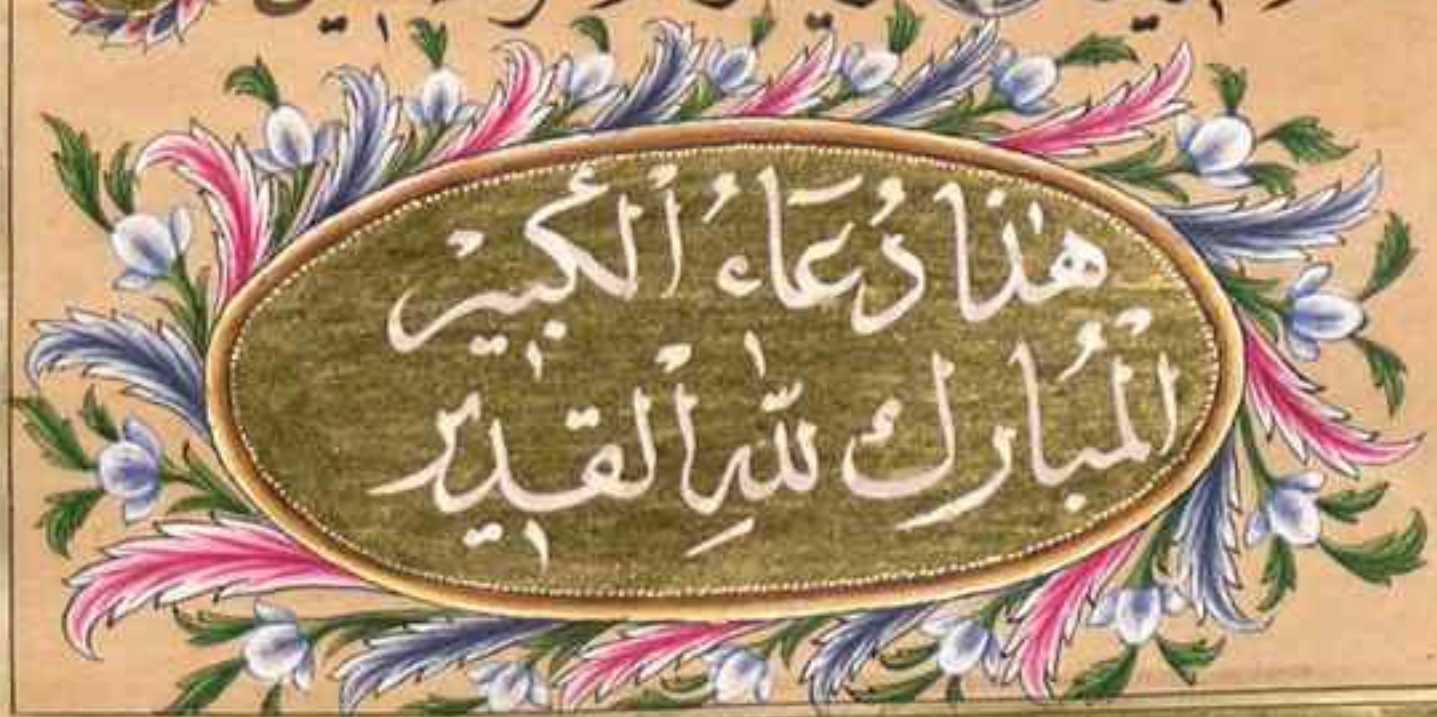 هٰذَا دُعَاءُ اْلكَبِيْر
اْلمُبَارك للّٰهِ اْلقَدِيْر